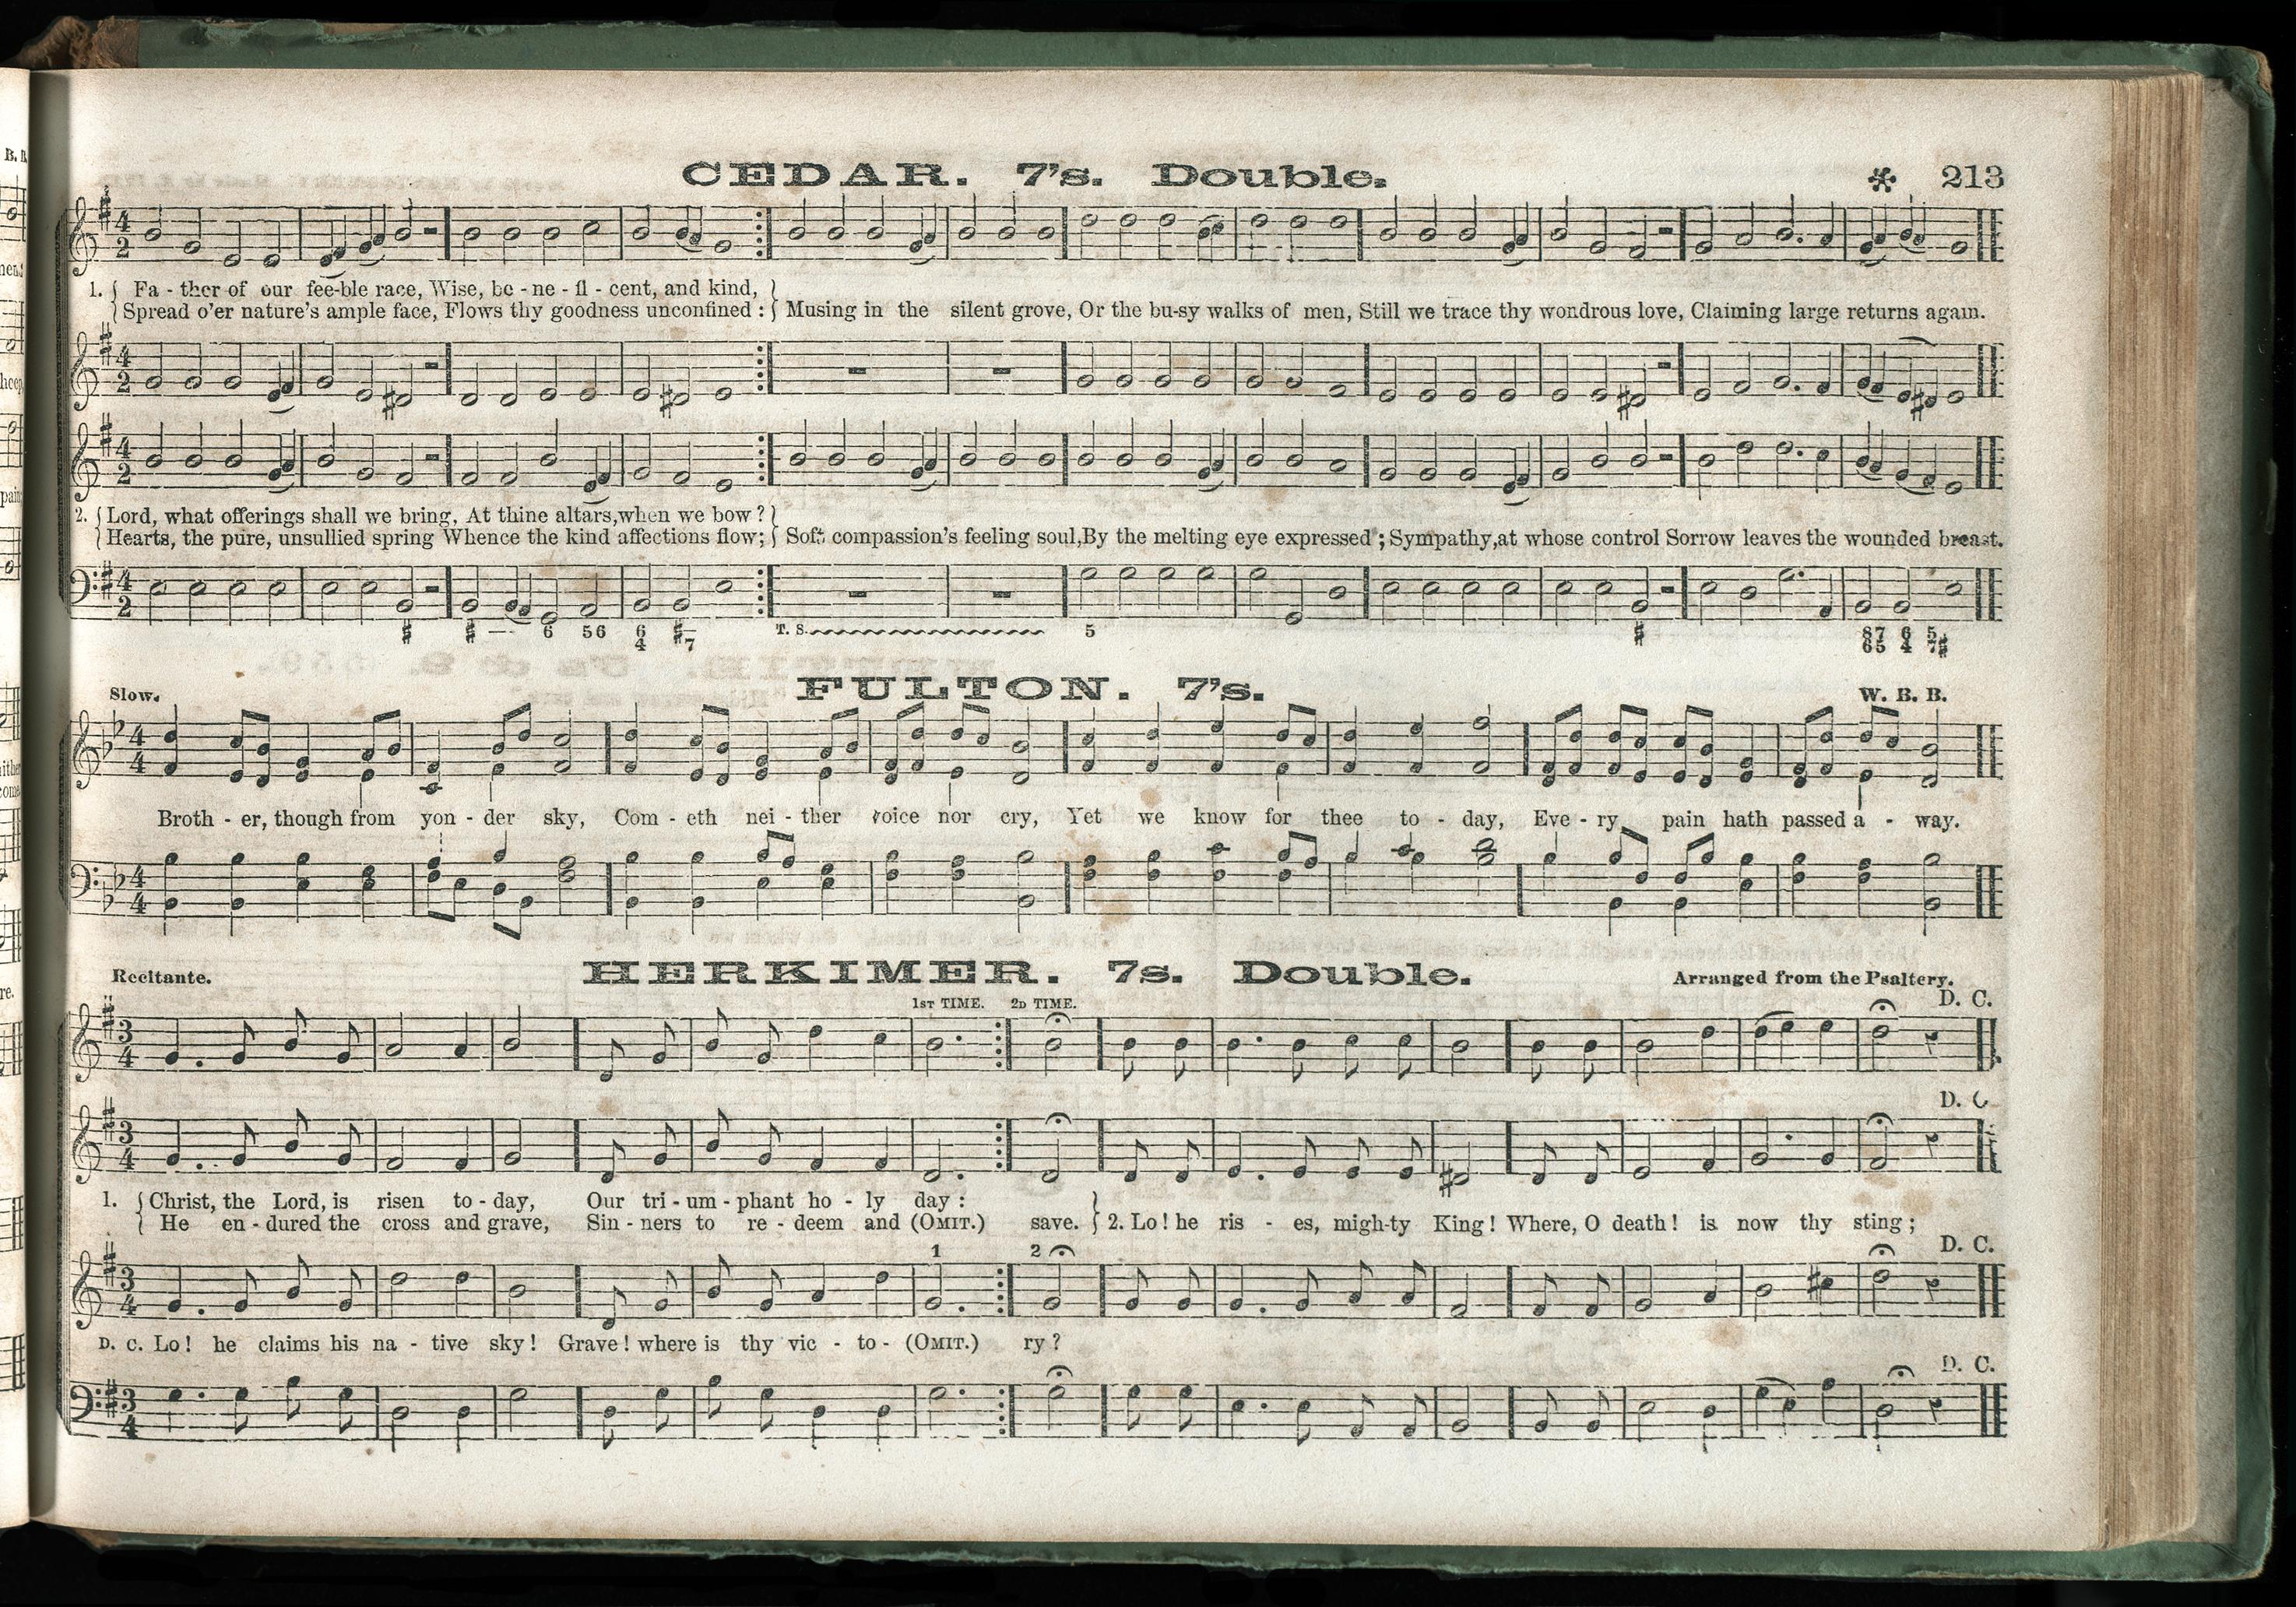 CEDAR. 7's. Double. 213
1. { Fa - ther of our fee-ble race, Wise, be - ne - fi - cent, and kind, }
{ Spread o'er nature's ample face, Flows thy goodness unconfined : } Musing in the silent grove, Or the bu-sy walks of men, Still we trace thy wondrous love, Claiming large returns again.
2. { Lord, what offerings shall we bring, At thine altars, when we bow ? }
{ Hearts, the pure, unsullied spring Whence the kind affections flow; } Soft compassion's feeling soul, By the melting eye expressed ; Sympathy, at whose control Sorrow leaves the wounded breast.
T. S.
FULTON. 7's.
Slow. W. B. B.
Broth - er, though from yon - der sky, Com - eth nei - ther voice nor cry, Yet we know for thee to - day, Eve - ry pain hath passed a - way.
HERKIMER. 7s. Double.
Recitante. Arranged from the Psaltery.
1ST TIME. 2D TIME. D. C.
D. C.
1. { Christ, the Lord, is risen to - day, Our tri - um - phant ho - ly day :
{ He en - dured the cross and grave, Sin - ners to re - deem and (OMIT.) save. } 2. Lo! he ris - es, migh-ty King! Where, O death! is now thy sting ;
1 2 D. C.
D. C. Lo! he claims his na - tive sky! Grave! where is thy vic - to - (OMIT.) ry ?
D. C.